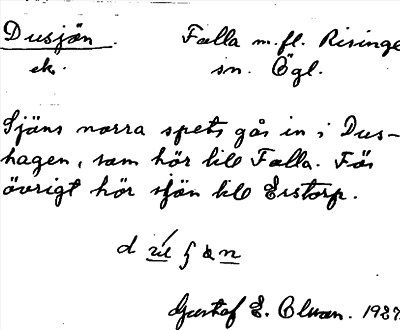 Dusjön. Falla m.fl. Risinge
ek. sn. Ögl.
Sjöns norra spets går in i Dus-
hagen, som hör till Falla. För
övrigt hör sjön till Erstorp.
Gustaf E. 1927